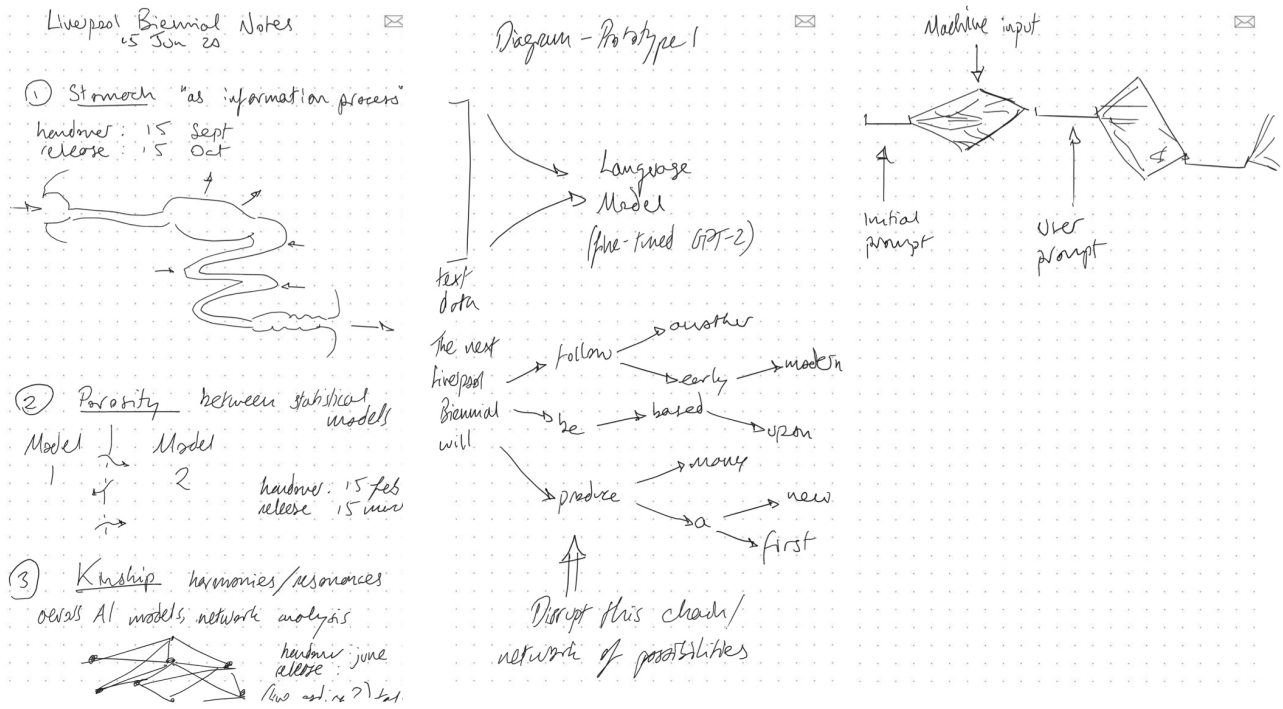 Liverpool Biennial Notes
15 Jun 20
1 Stomach "as information process"
handover: 15 Sept
release: 15 Oct
2 Porosity between statistical
models
Model Model
1 2
handover: 15 feb
release 15 mar
3 Kinship harmonies/resonances
across AI models, network analysis
handover: june
release:
(live
Diagram - Prototype 1
Language
Model
(fine-tuned GPT-2)
text
data
The next
Liverpool
Biennial
will
follow
another
early
modern
be
based
upon
produce
many
a
new
first
Disrupt this chain/
network of possibilities
Machine input
Initial
prompt
User
prompt